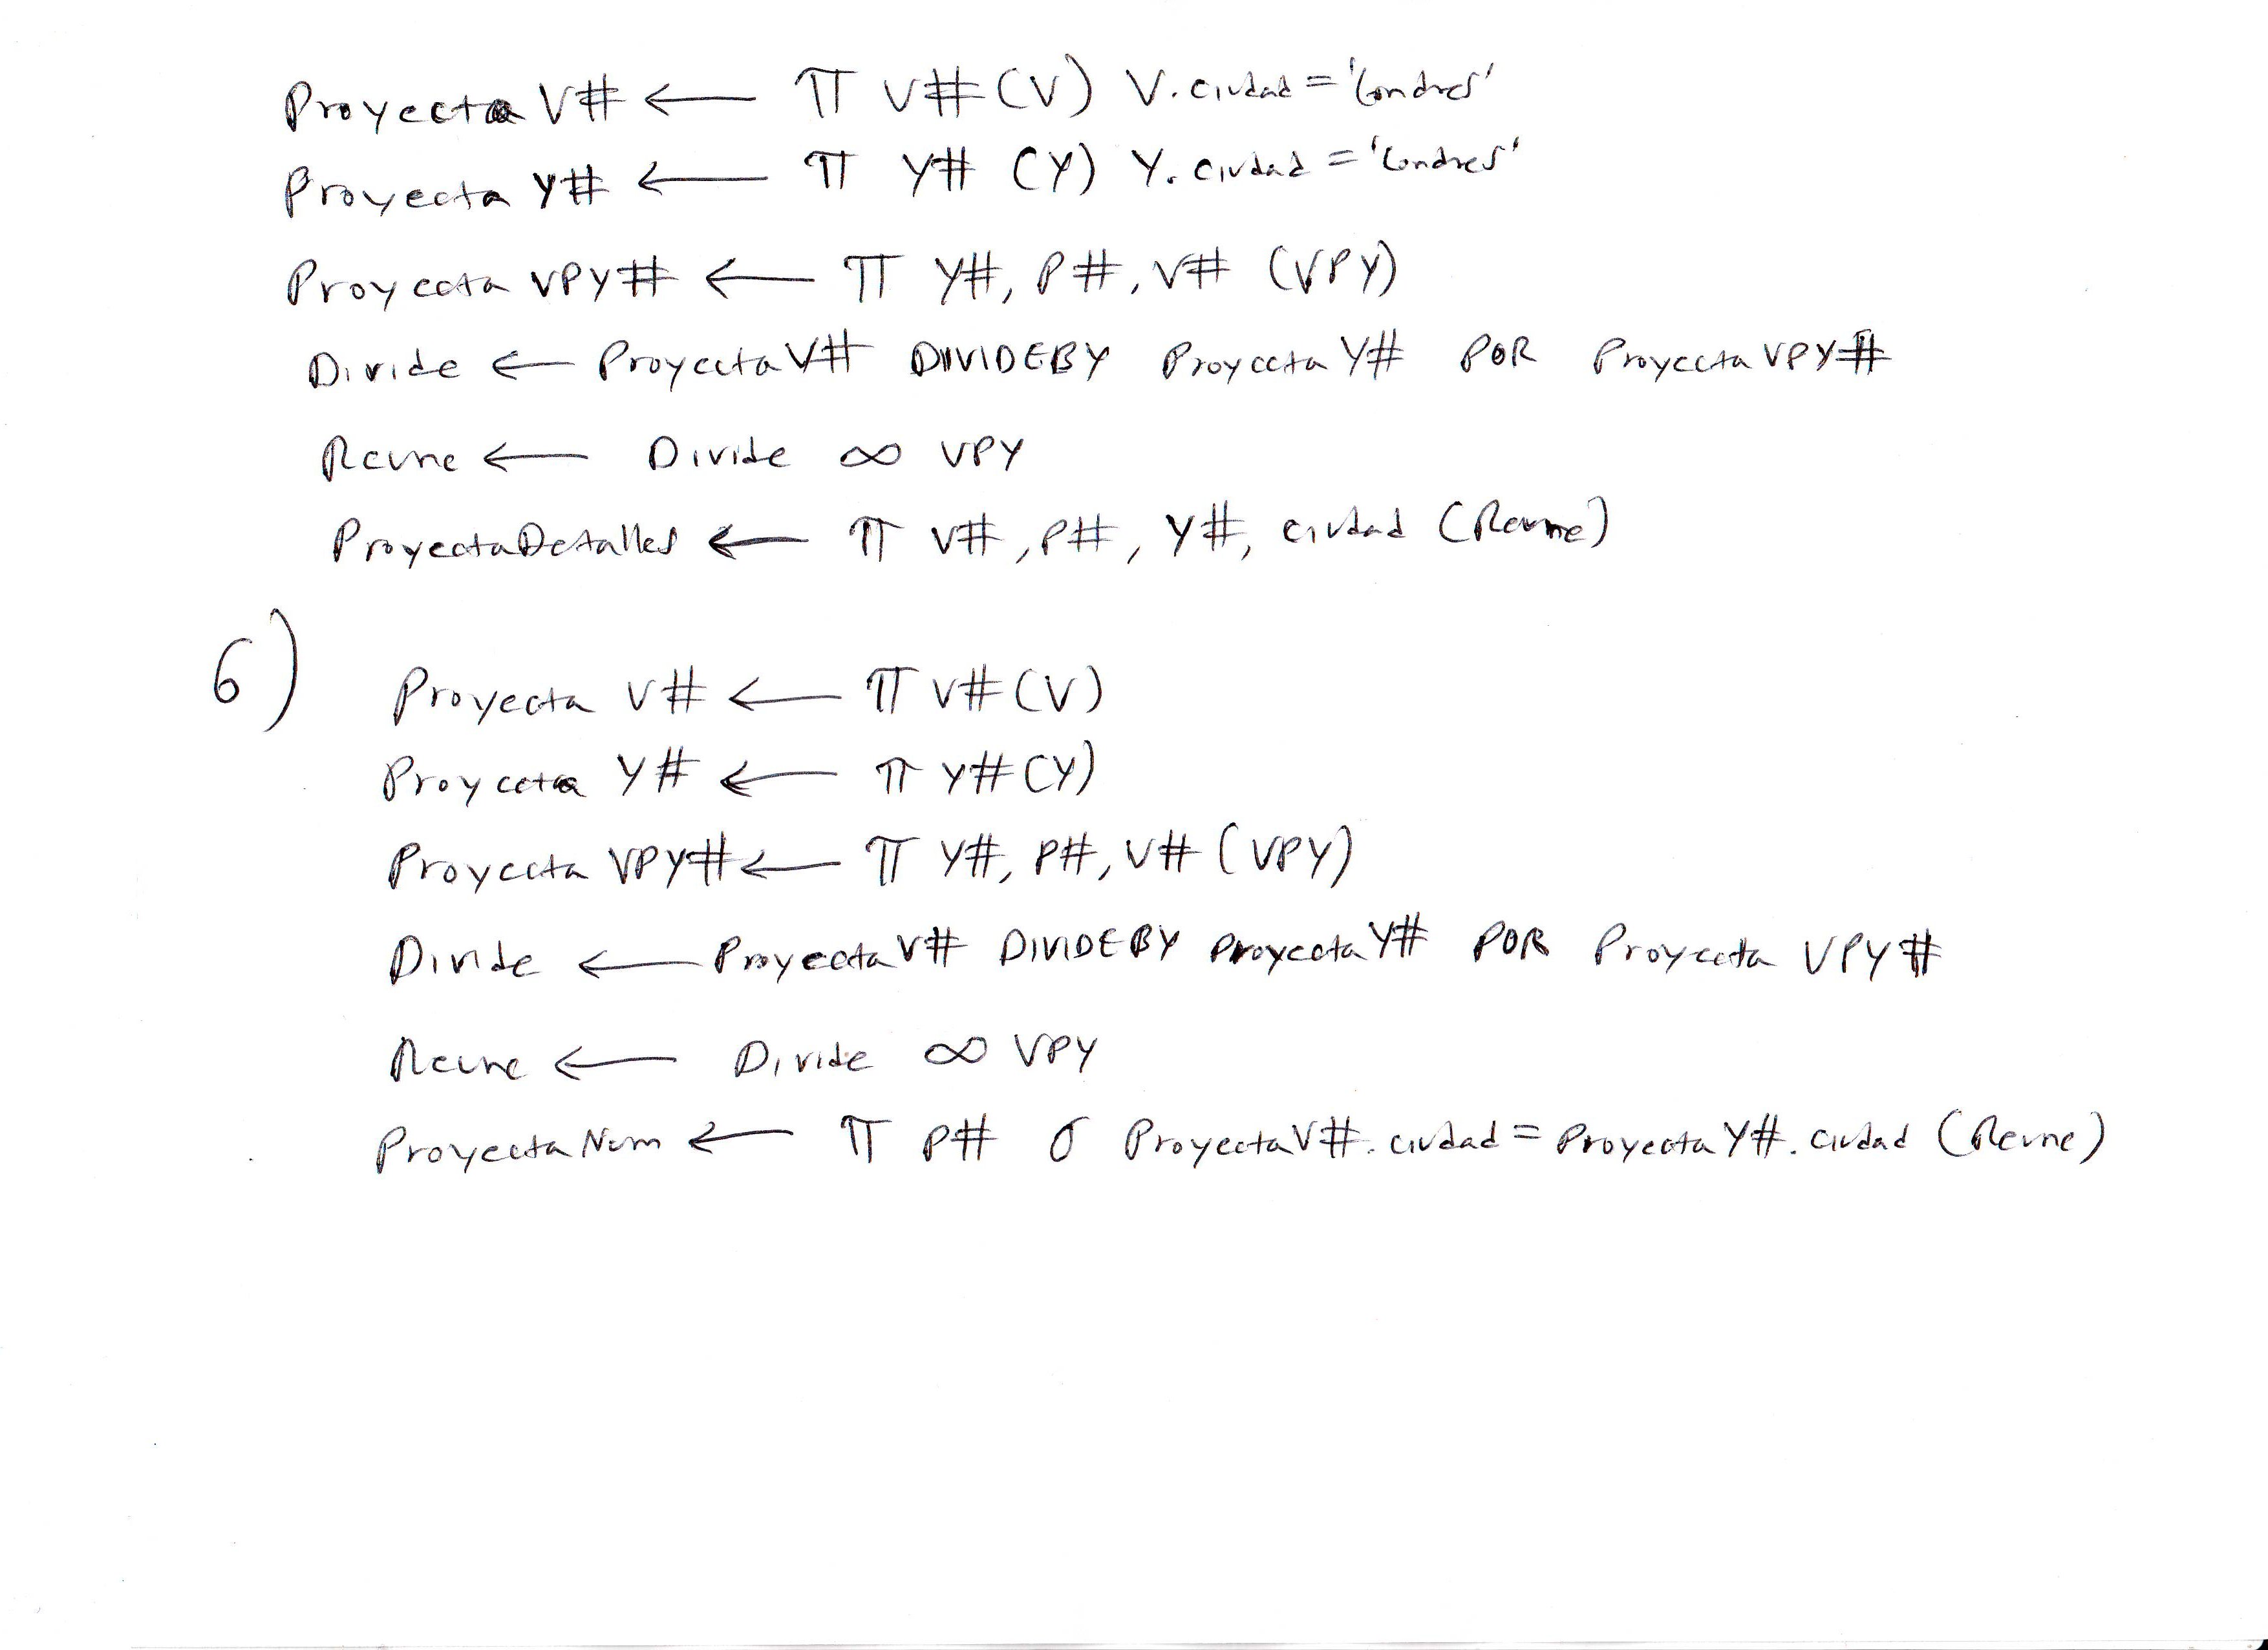 Proyecta V# ← π V# (V) V.ciudad = 'Londres'
Proyecta Y# ← π Y# (Y) Y.ciudad = 'Londres'
Proyecta VPY# ← π Y#, P#, V# (VPY)
Divide ← Proyecta V# DIVIDEBY Proyecta Y# POR Proyecta VPY#
Reune ← Divide ∞ VPY
ProyectaDetalles ← π V#, P#, Y#, ciudad (Reune)
6)
Proyecta V# ← π V# (V)
Proyecta Y# ← π Y# (Y)
Proyecta VPY# ← π Y#, P#, V# (VPY)
Divide ← Proyecta V# DIVIDEBY Proyecta Y# POR Proyecta VPY#
Reune ← Divide ∞ VPY
Proyecta Num ← π P# σ Proyecta V#.ciudad = Proyecta Y#.ciudad (Reune)